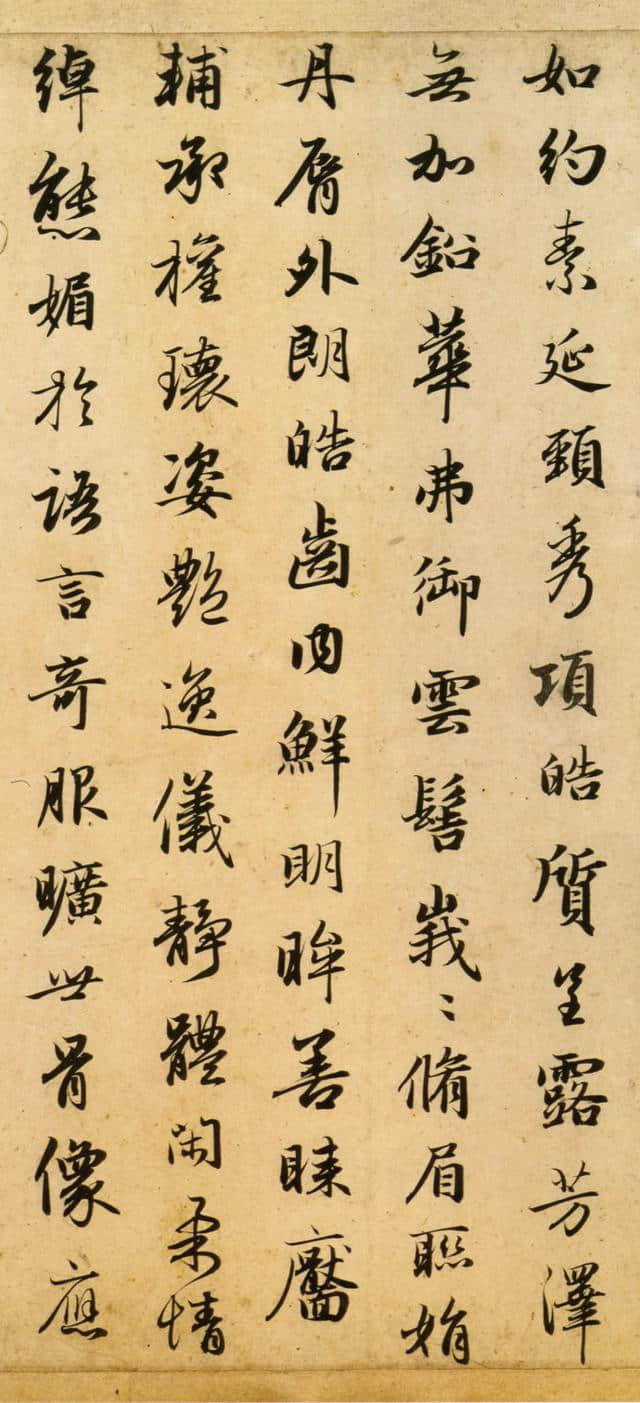 如約素延頸秀項皓質呈露芳澤
無加鉛華弗御雲髻峩〻脩眉聯娟
丹脣外朗皓齒內鮮明眸善睞靨
輔承權瓌姿艷逸儀靜體閑柔情
綽態媚於語言奇服曠世骨像應